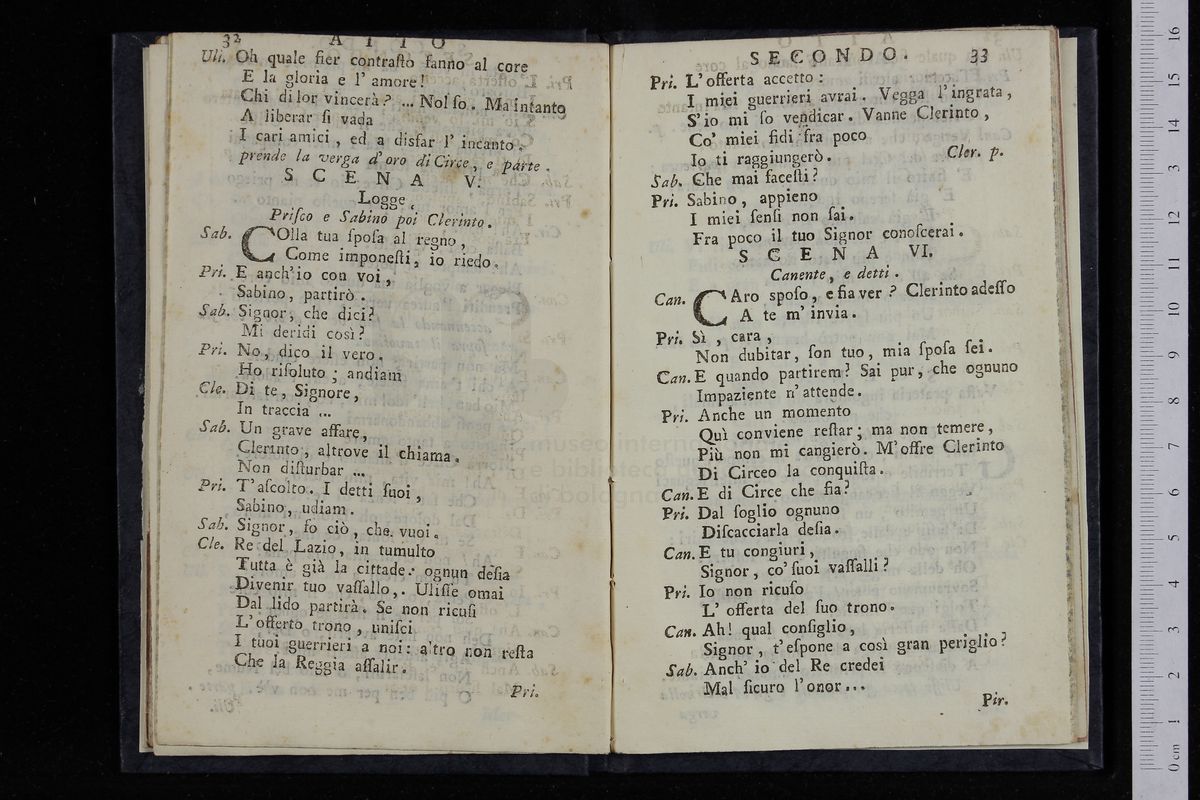 32 ATTO
Uli. Oh quale fier contraſto fanno al core
E la gloria e l' amore!
Chi di lor vincerà? ... Nol ſo. Ma intanto
A liberar ſi vada
I cari amici, ed a disfar l' incanto.
prende la verga d' oro di Circe, e parte.
SCENA V.
Logge.
Priſco e Sabino poi Clerinto.
Sab. COlla tua ſpoſa al regno,
Come imponeſti, io riedo.
Pri. E anch' io con voi,
Sabino, partirò.
Sab. Signor, che dici?
Mi deridi così?
Pri. No, dico il vero.
Ho riſoluto; andiam
Cle. Di te, Signore,
In traccia ...
Sab. Un grave affare,
Clerinto, altrove il chiama.
Non diſturbar ...
Pri. T' aſcolto. I detti ſuoi,
Sabino, udiam.
Sab. Signor, ſo ciò, che vuoi.
Cle. Re del Lazio, in tumulto
Tutta è già la cittade: ognun deſia
Divenir tuo vaſſallo,. Uliſſe omai
Dal lido partirà. Se non ricuſi
L' offerto trono, uniſci
I tuoi guerrieri a noi: altro non reſta
Che la Reggia aſſalir.
Pri.
SECONDO. 33
Pri. L' offerta accetto:
I miei guerrieri avrai. Vegga l' ingrata,
S' io mi ſo vendicar. Vanne Clerinto,
Co' miei fidi fra poco
Io ti raggiungerò. Cler. p.
Sab. Che mai faceſti?
Pri. Sabino, appieno
I miei ſenſi non ſai.
Fra poco il tuo Signor conoſcerai.
SCENA VI.
Canente, e detti.
Can. CAro ſpoſo, e fia ver? Clerinto adeſſo
A te m' invia.
Pri. Sì, cara,
Non dubitar, ſon tuo, mia ſpoſa ſei.
Can. E quando partirem? Sai pur, che ognuno
Impaziente n' attende.
Pri. Anche un momento
Quì conviene reſtar; ma non temere,
Più non mi cangierò. M' offre Clerinto
Di Circeo la conquiſta.
Can. E di Circe che fia?
Pri. Dal ſoglio ognuno
Diſcacciarla deſia.
Can. E tu congiuri,
Signor, co' ſuoi vaſſalli?
Pri. Io non ricuſo
L' offerta del ſuo trono.
Can. Ah! qual conſiglio,
Signor, t' eſpone a così gran periglio?
Sab. Anch' io del Re credei
Mal ſicuro l' onor...
Pir.
museo inter
e bibliotec
di bologna
0 cm 1 2 3 4 5 6 7 8 9 10 11 12 13 14 15 16